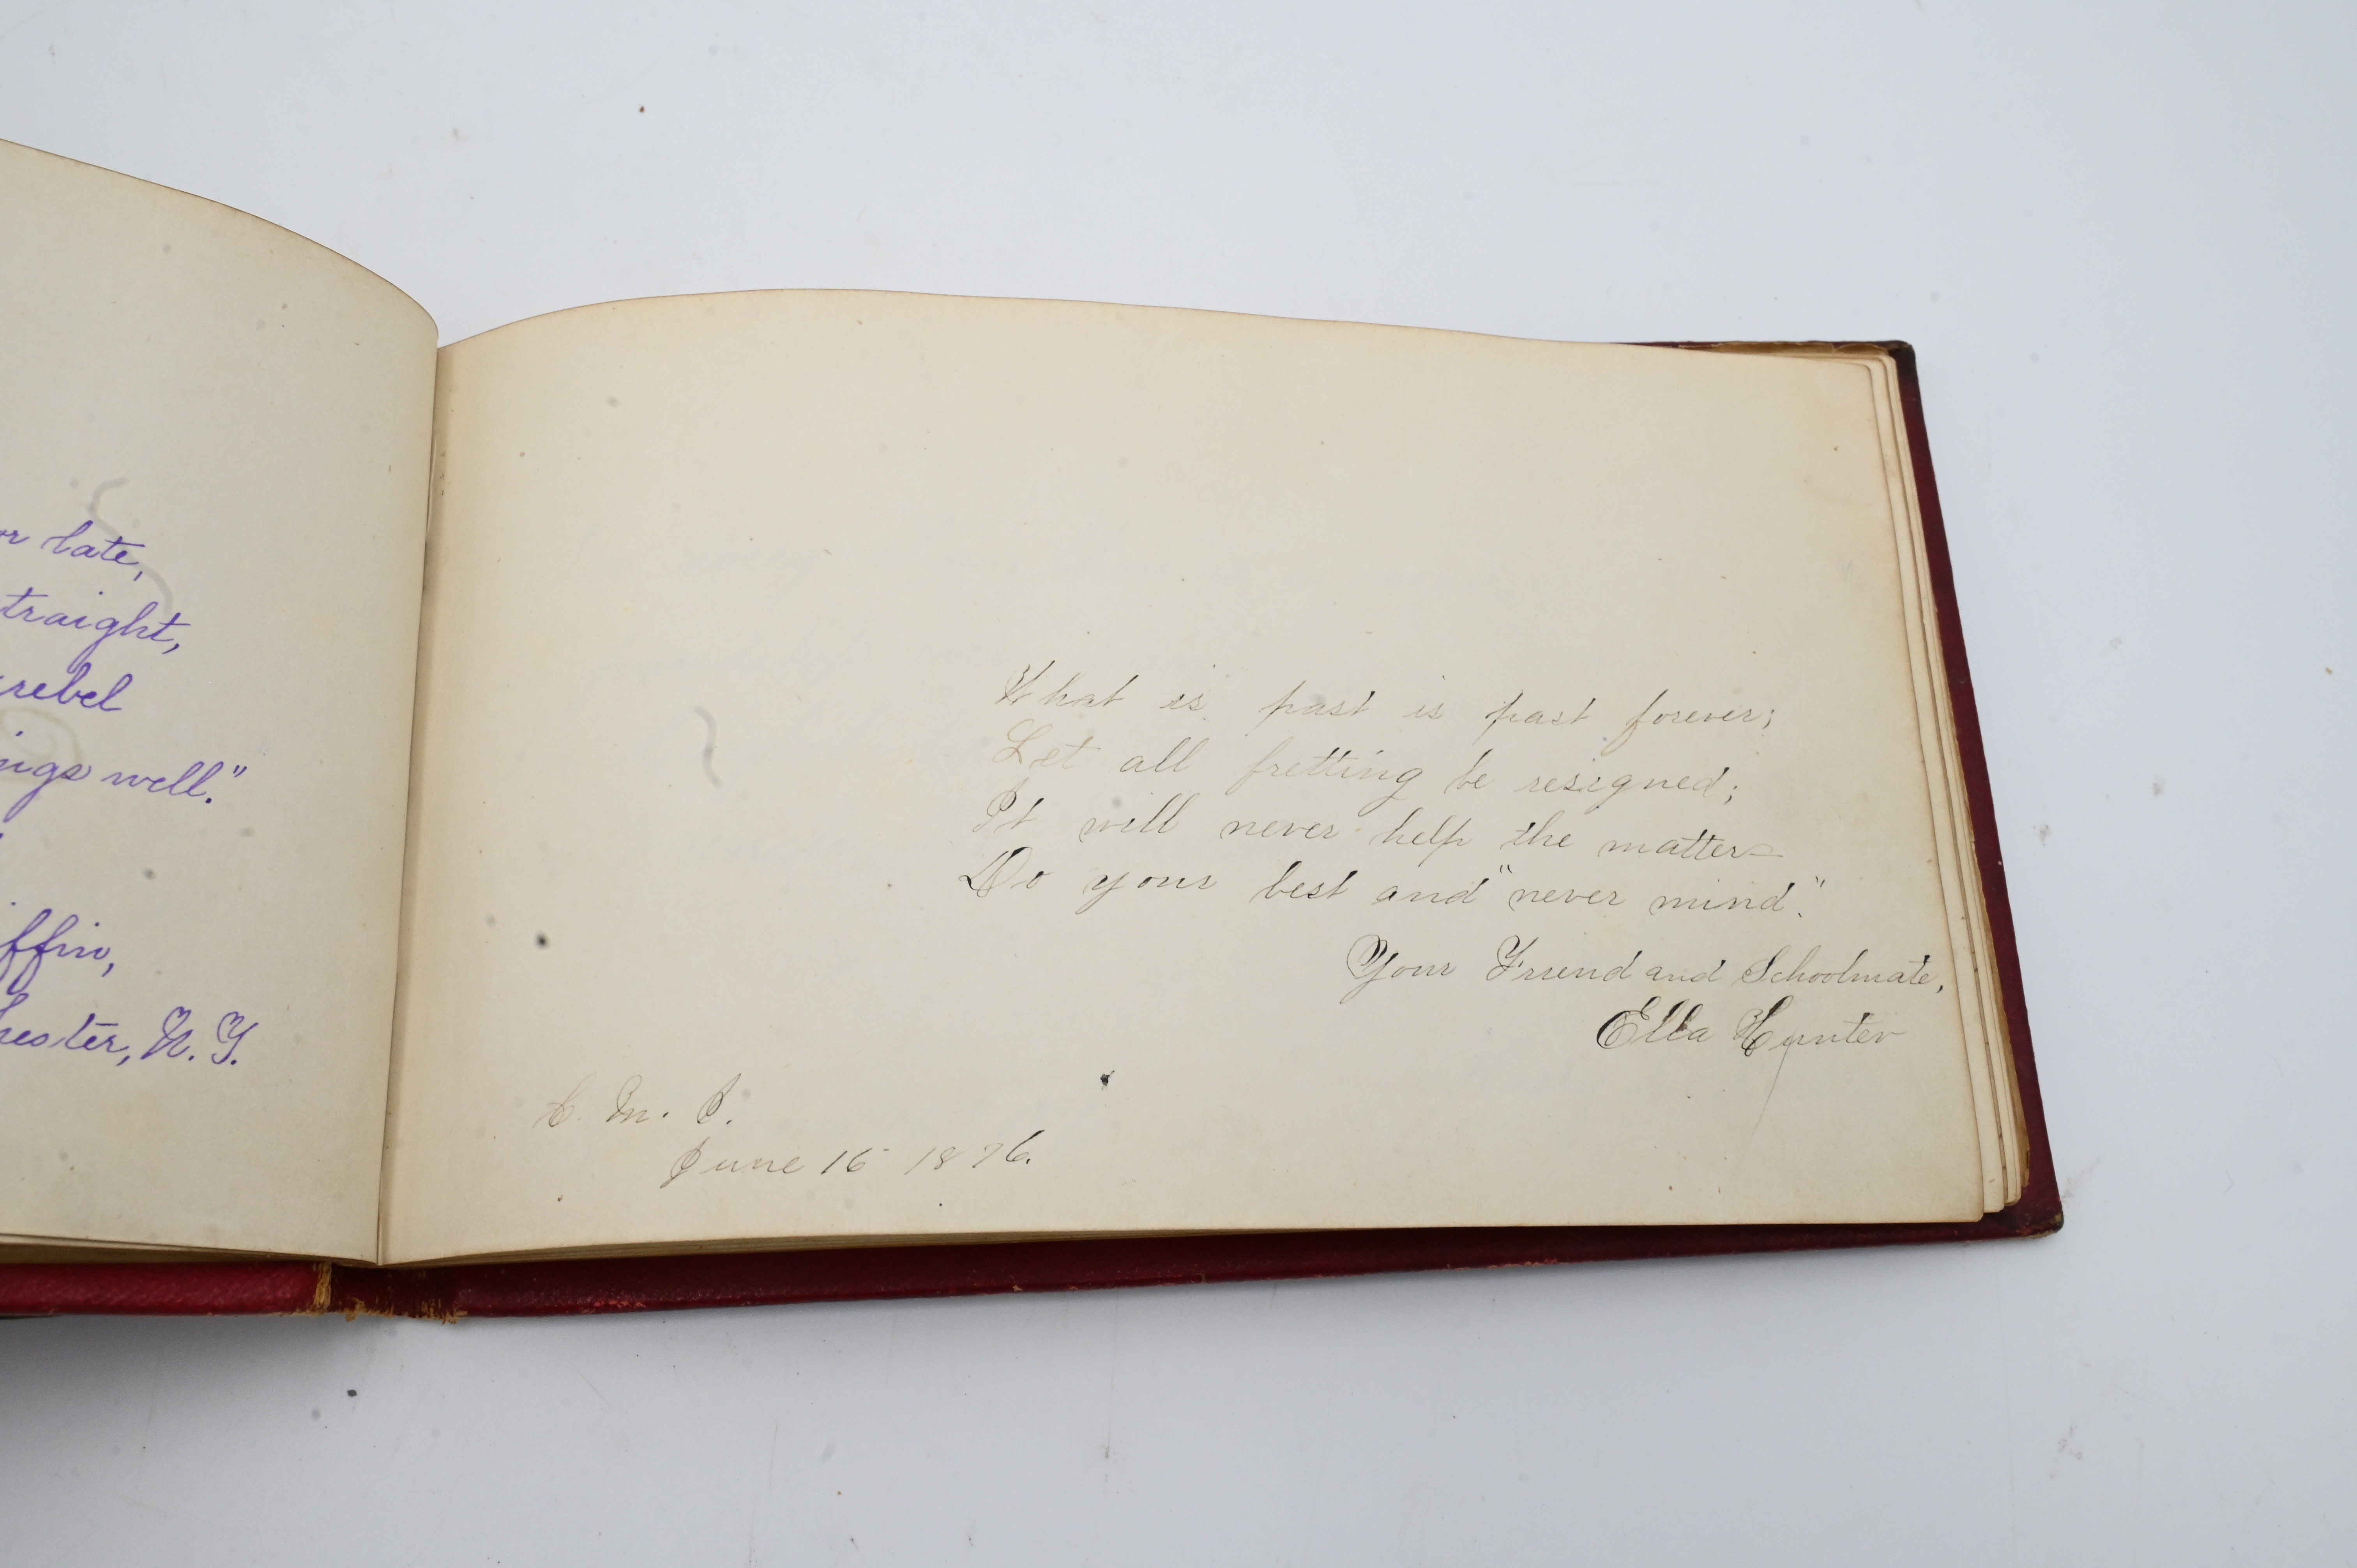 or late,
traight,
rebel
ings well."
ffin,
hester, N. Y.
What is past is past forever;
Let all fretting be resigned;
It will never help the matter—
Do your best and "never mind."
Your Friend and Schoolmate,
Ella Hunter
C. M. I.
June 16 1876.